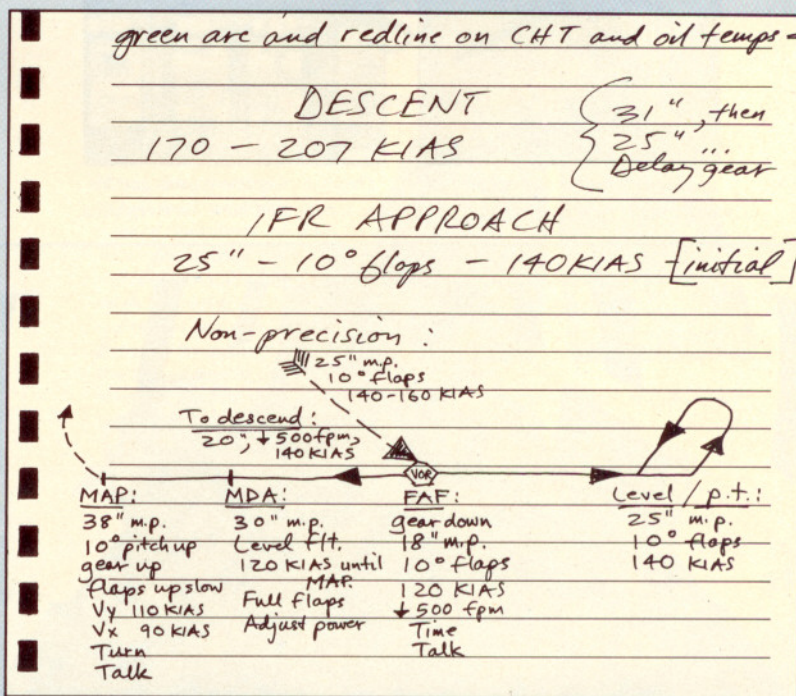 green arc and redline on CHT and oil temps -
DESCENT
170 - 207 KIAS
31", then
25" ...
Delay gear
IFR APPROACH
25" - 10° flaps - 140 KIAS - [initial]
Non-precision:
25" m.p.
10° flaps
140-160 KIAS
To descend:
20", ↓ 500 fpm,
140 KIAS
VOR
MAP:
38" m.p.
10° pitch up
gear up
flaps up slow
Vy 110 KIAS
Vx 90 KIAS
Turn
Talk
MDA:
30" m.p.
Level flt.
120 KIAS until
MAP.
Full flaps
Adjust power
FAF:
gear down
18" m.p.
10° flaps
120 KIAS
↓ 500 fpm
Time
Talk
Level / p.t.:
25" m.p.
10° flaps
140 KIAS